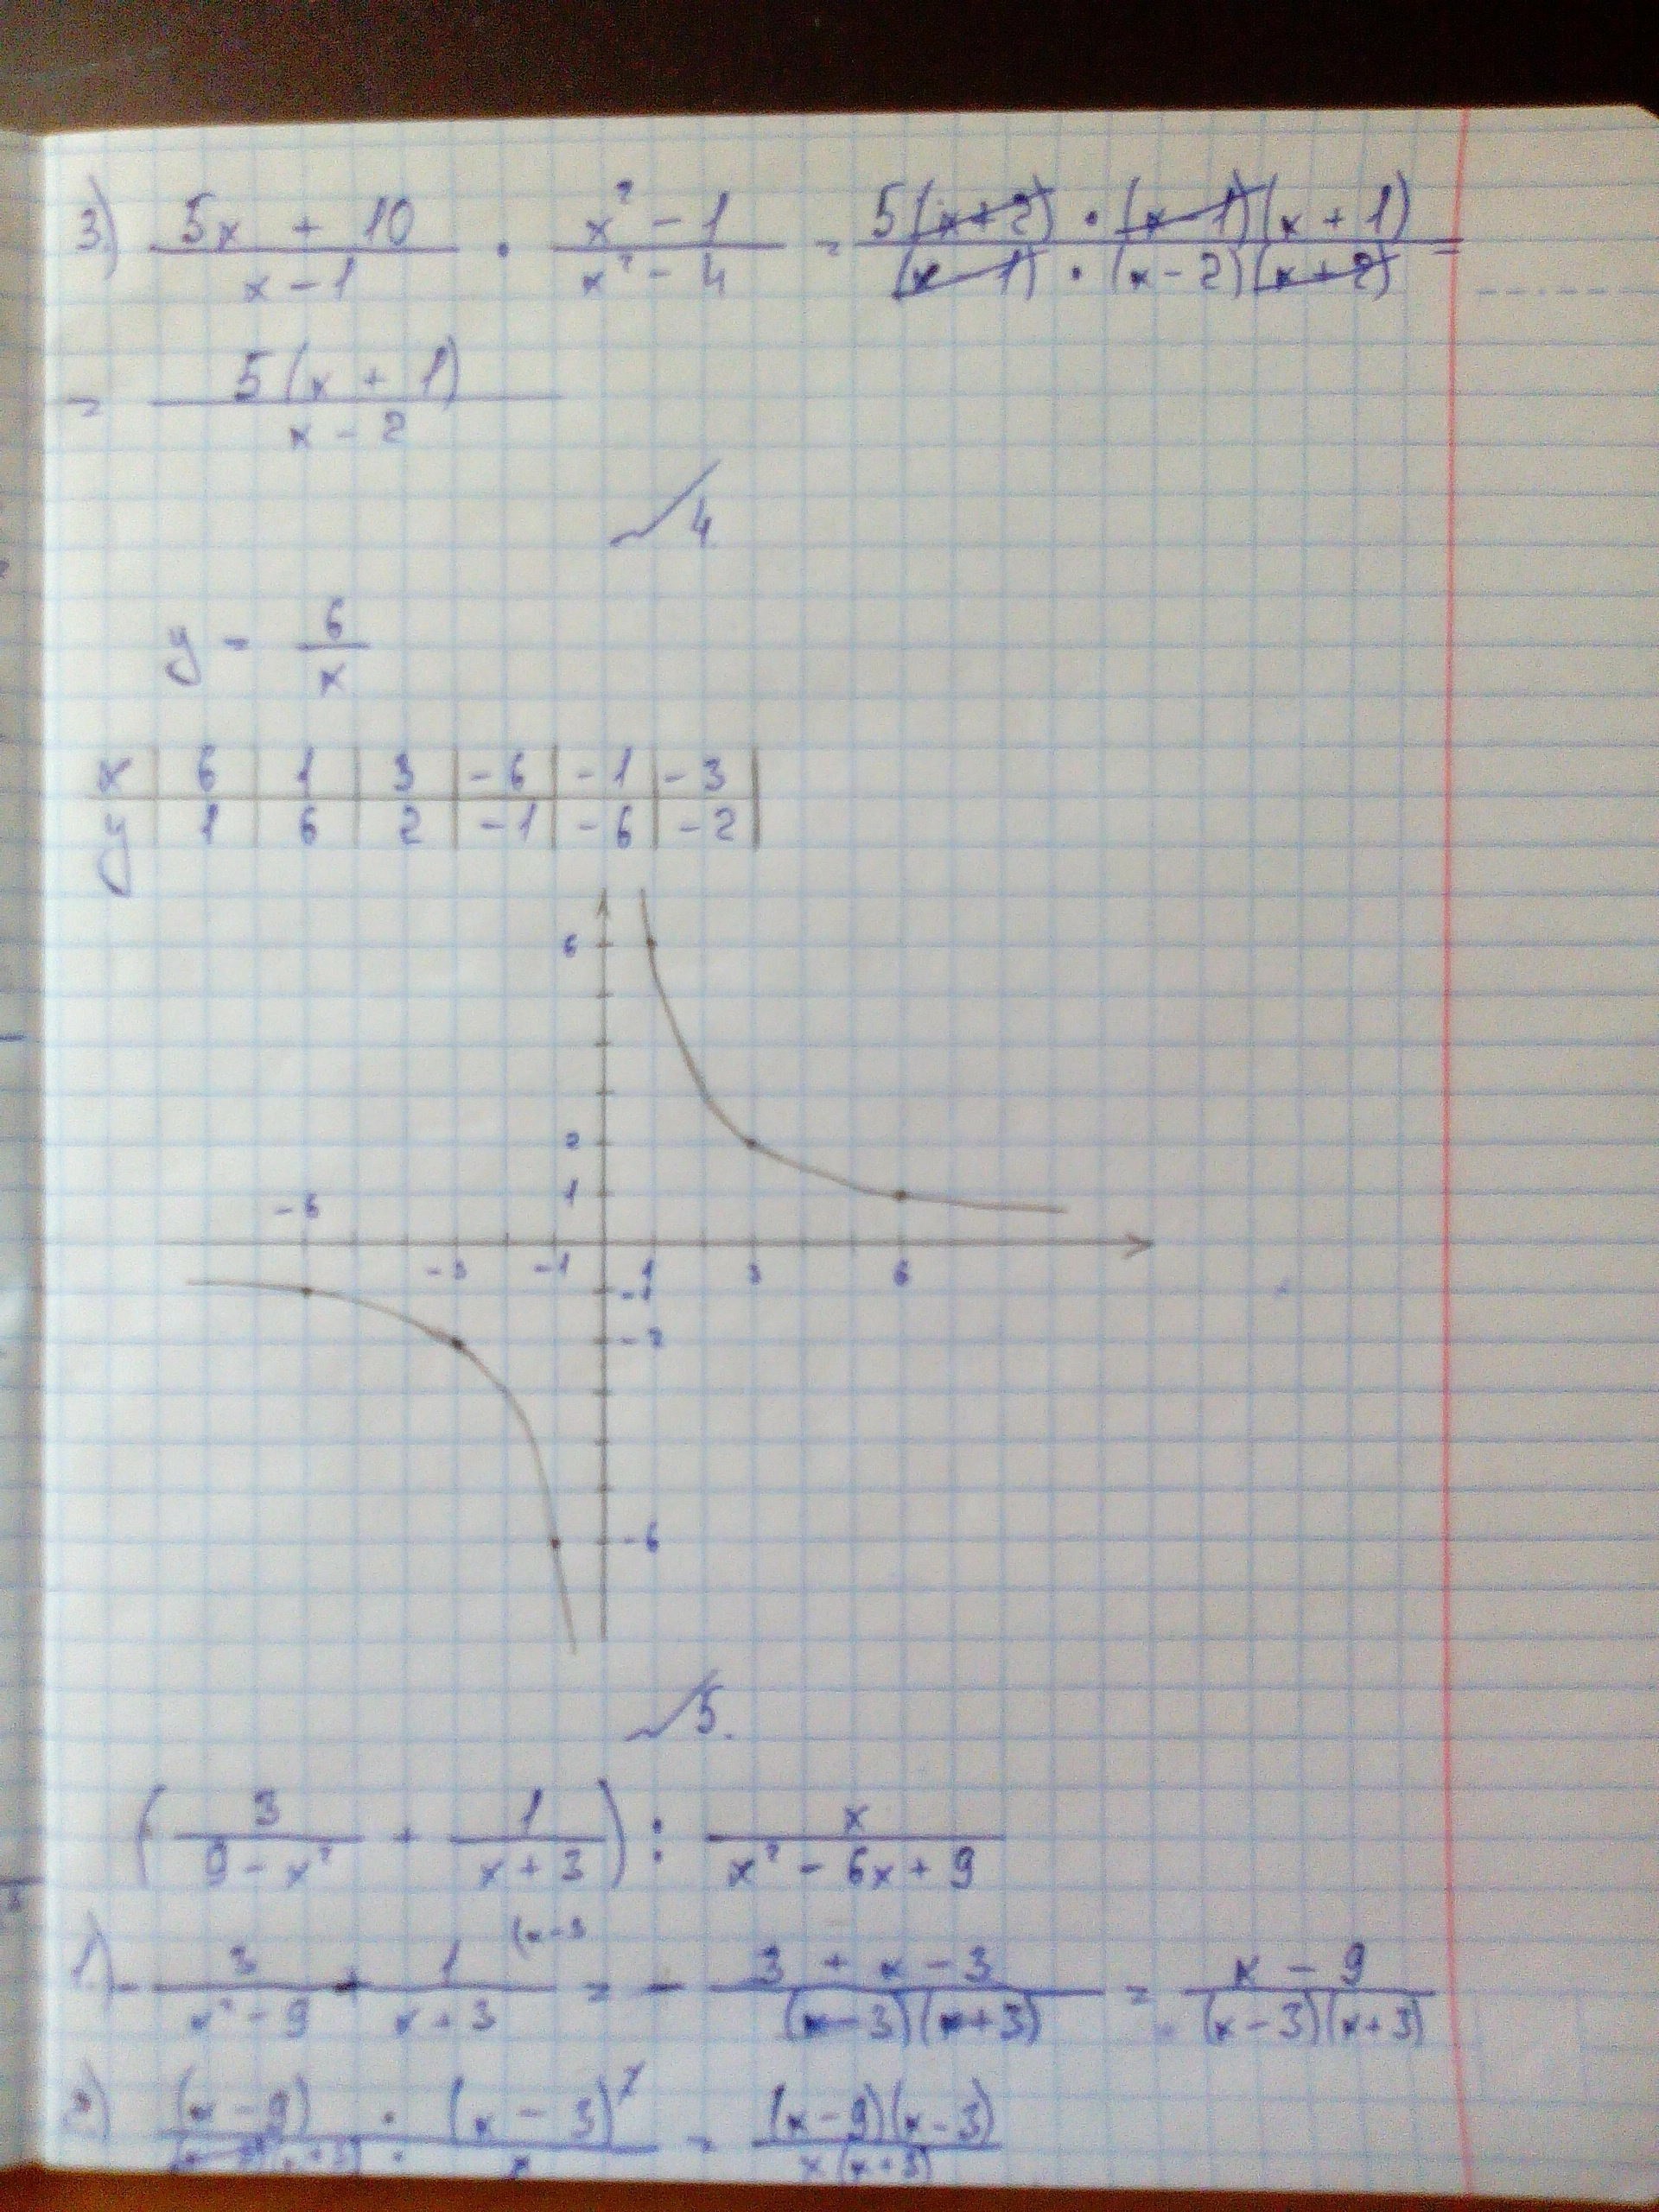 3.) (5x + 10)/(x - 1) · (x² - 1)/(x² - 4) = (5(x+2) · (x-1)(x+1))/((x-1) · (x-2)(x+2)) =
= (5(x + 1))/(x - 2)
№4
y = 6/x
x | 6 | 1 | 3 | -6 | -1 | -3 |
y | 1 | 6 | 2 | -1 | -6 | -2 |
6
2
1
-6
-3 -1 1 3 6
-1
-2
-6
№5.
(3/(9 - x²) + 1/(x + 3)) : x/(x² - 6x + 9)
(x-3
1.) - 3/(x² - 9) + 1/(x + 3) = - (3 + x - 3)/((x-3)(x+3)) = (x - 9)/((x-3)(x+3))
2) (x - 9)/((x-3)(x+3)) · (x - 3)²/x = ((x-9)(x-3))/(x(x+3))